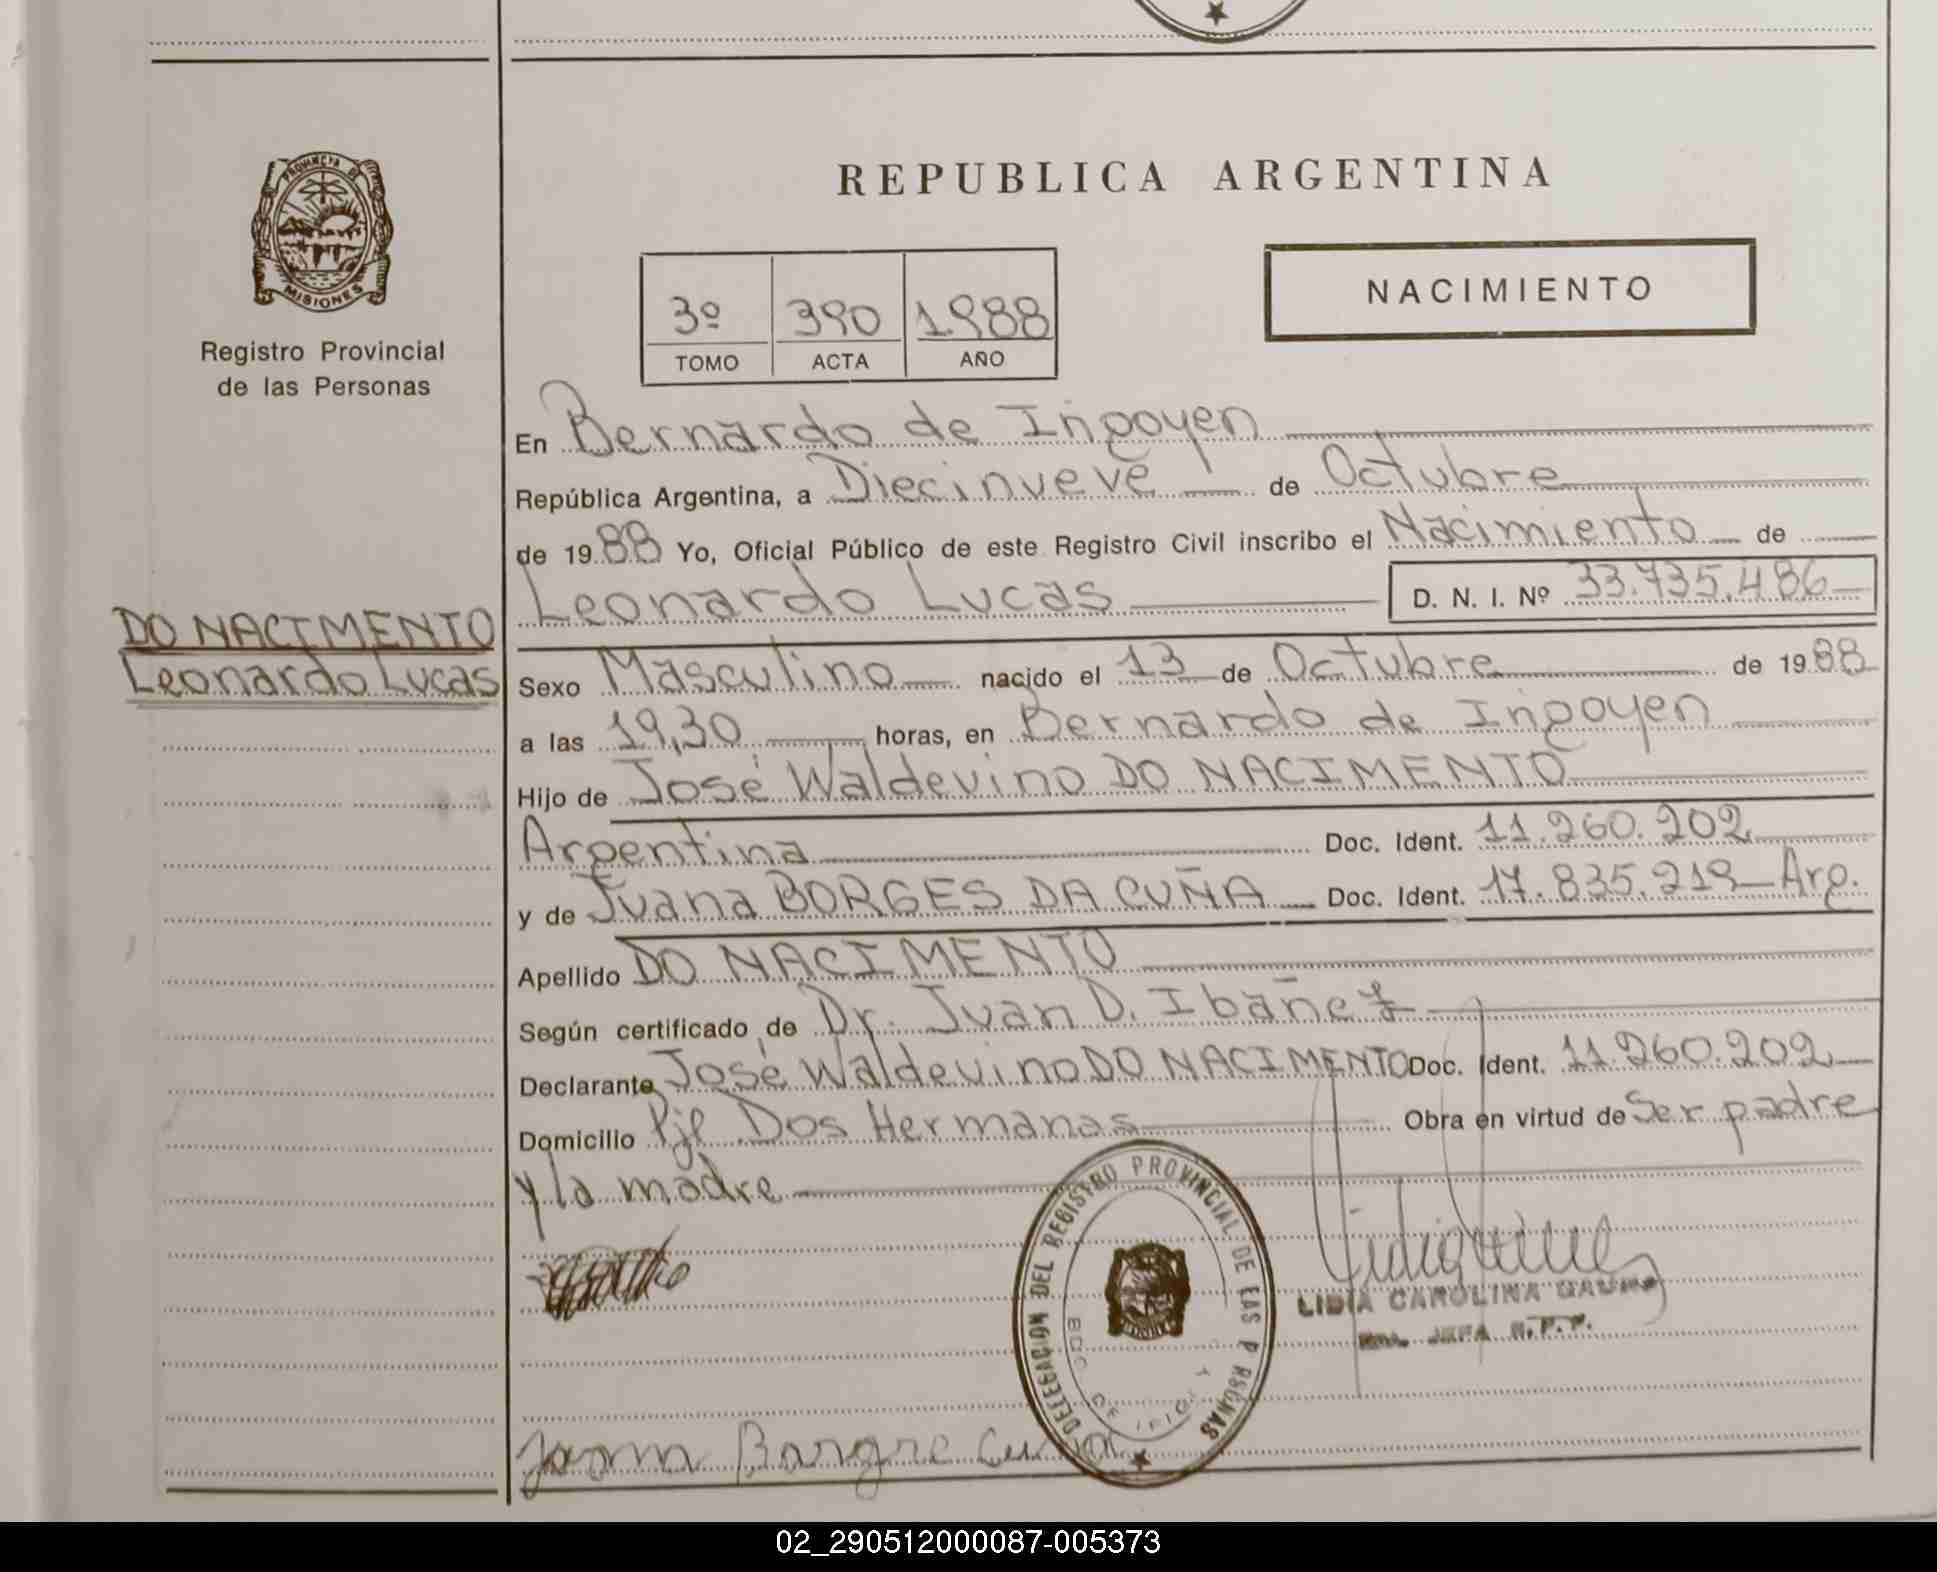 PROVINCIA DE
MISIONES
Registro Provincial
de las Personas
DO NACIMENTO
Leonardo Lucas
REPUBLICA ARGENTINA
3º 390 1.988
TOMO ACTA AÑO
NACIMIENTO
En Bernardo de Irigoyen
República Argentina, a Diecinueve de Octubre
de 1988 Yo, Oficial Público de este Registro Civil inscribo el Nacimiento de
Leonardo Lucas D. N. I. Nº 33.735.486
Sexo Masculino nacido el 13 de Octubre de 1988
a las 19,30 horas, en Bernardo de Irigoyen
Hijo de José Waldevino DO NACIMENTO
Argentina Doc. Ident. 11.260.202
y de Juana BORGES DA CUÑA Doc. Ident. 17.835.219 Arg.
Apellido DO NACIMENTO
Según certificado de Dr. Juan D. Ibañez
Declarante José Waldevino DO NACIMENTO Doc. Ident. 11.260.202
Domicilio Pje Dos Hermanas Obra en virtud de Ser padre
y la madre
DELEGACION DEL REGISTRO PROVINCIAL DE LAS PERSONAS
LIDIA CAROLINA
JEFA R.P.P.
02_290512000087-005373